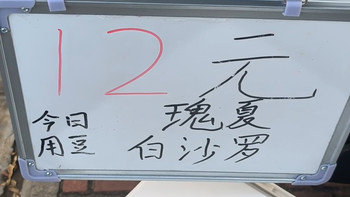 12元
今日 瑰夏
用豆 白沙罗